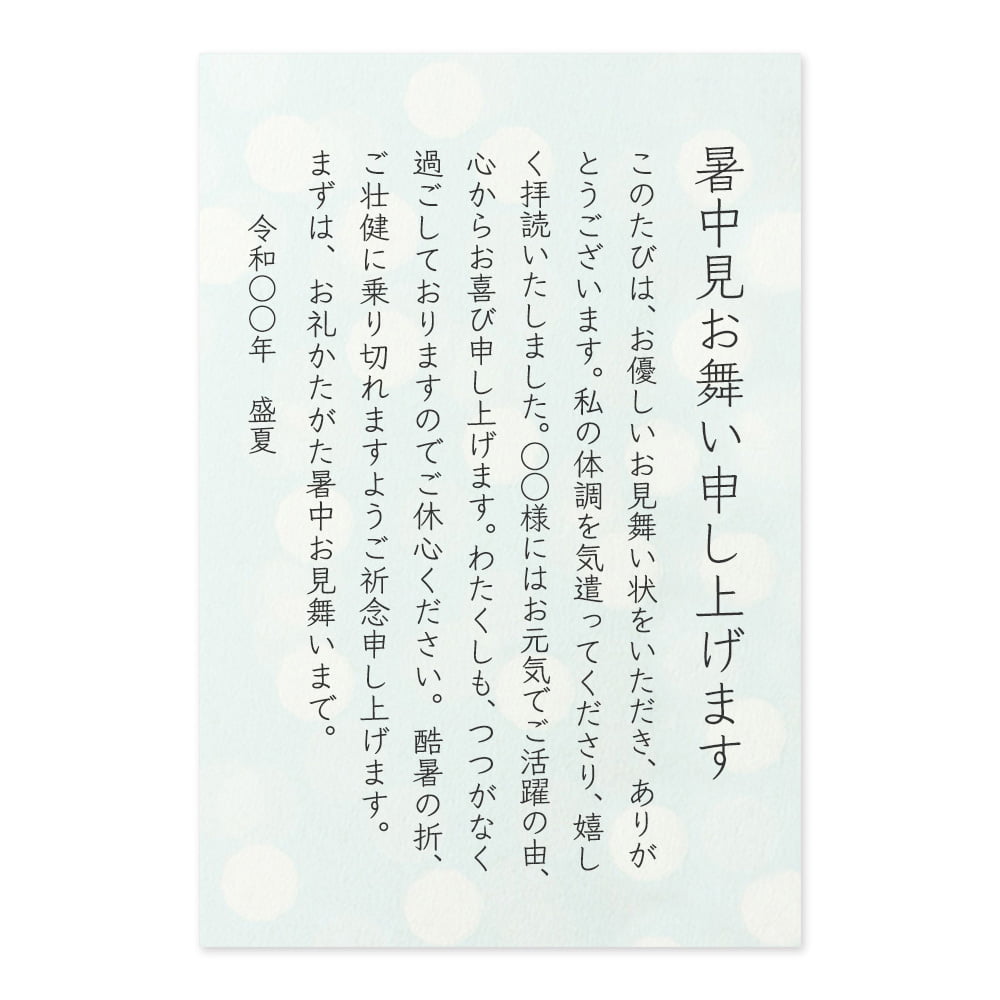 暑中見お舞い申し上げます
このたびは、お優しいお見舞い状をいただき、ありが
とうございます。私の体調を気遣ってくださり、嬉し
く拝読いたしました。〇〇様にはお元気でご活躍の由、
心からお喜び申し上げます。わたくしも、つつがなく
過ごしておりますのでご休心ください。酷暑の折、
ご壮健に乗り切れますようご祈念申し上げます。
まずは、お礼かたがた暑中お見舞いまで。
令和〇〇年　盛夏